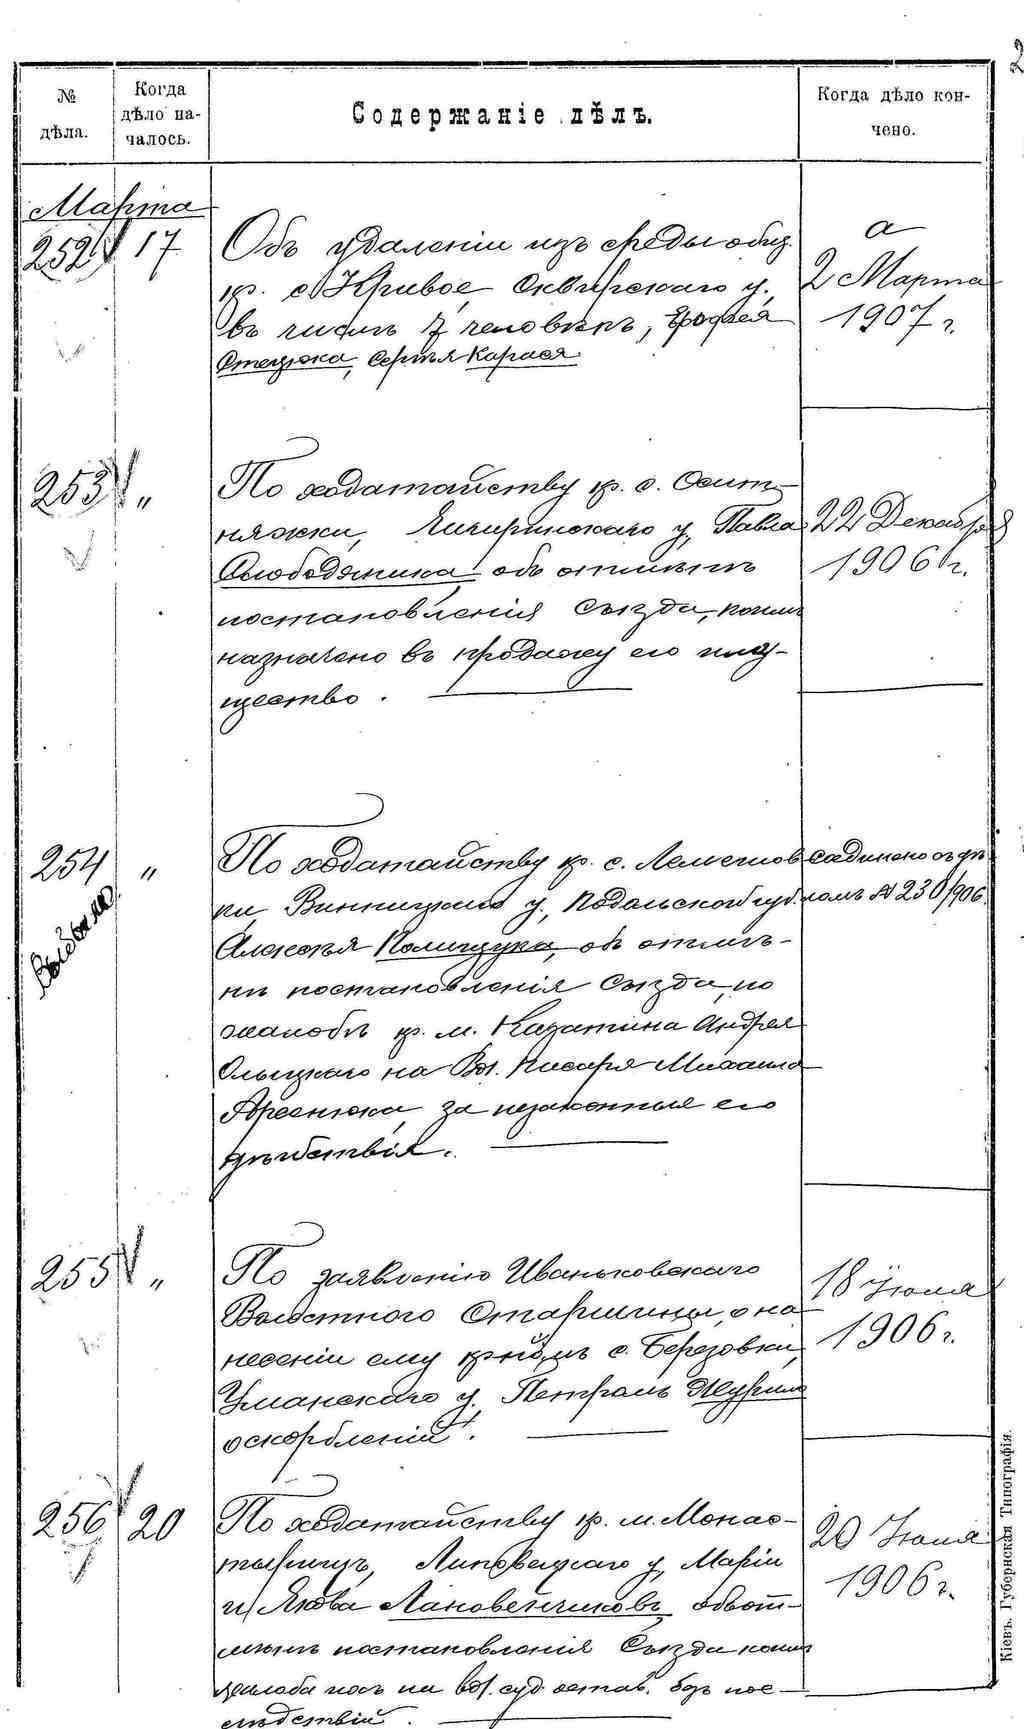 2
№ дѣла.
Когда дѣло началось.
Содержаніе дѣлъ.
Когда дѣло кончено.
Марта
252 17
Объ удаленіи изъ среды общ.
кр. с. Кривое, Сквирскаго у.,
въ числѣ 7 человѣкъ,
Стецюка, Сергѣя Карася
а
2 Марта
1907 г.
253 "
По ходатайству кр. с. Осит-
няжки, Чигиринскаго у., Павла
Слободяника объ отмѣнѣ
постановленія Съѣзда, коимъ
назначено въ продажу его иму-
щество.
22 Декабря
1906 г.
254 "
Выбыло
По ходатайству кр. с.
Винницкаго у., Подольской губ.
Алексѣя Полищука, объ отмѣ-
нѣ постановленія Съѣзда, по
жалобѣ кр. м. Казатина Андрея
Ольшцкаго на Вол. Писаря Михаила
Арсенюка, за незаконныя его
дѣйствія.
соединено съ дѣ-
ломъ № 230/906.
255 "
По заявленію Иваньковскаго
Волостного Старшины, о на
несеніи ему кр-номъ с. Березовки,
Уманскаго у. Петромъ Журило
оскорбленій.
18 Июля
1906 г.
256 20
По ходатайству кр. м. Монас-
тырищъ, Липовецкаго у, Маріи
и Якова Лановенчиковъ, объ от-
мѣнѣ постановленія Съѣзда коимъ
жалоба ихъ на вол. суд. остав. безъ пос-
лѣдствій.
20 Июля
1906 г.
Кіевъ. Губернская Типографія.